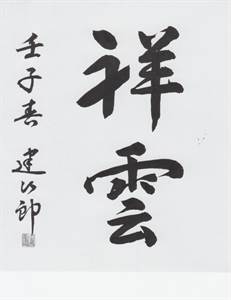 祥雲
壬子春 建次郎